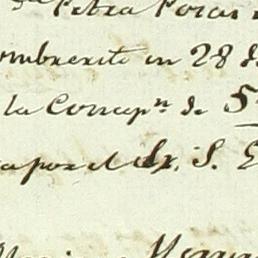 Petra Poras
ombrerete en 28 de
la Concepn. de 5
a por el Sr. S. E